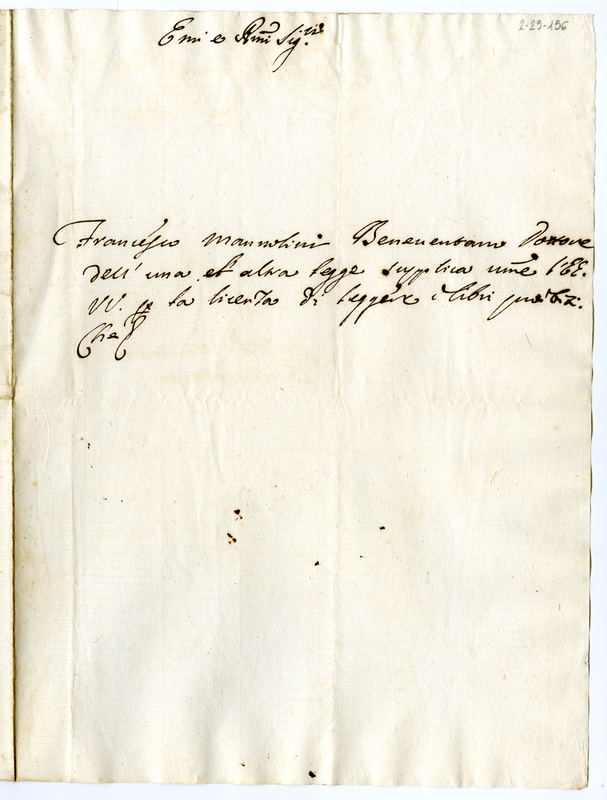 2-29-156
Emi e Rmi Sig.ri
Francesco Mannolini Beneventano Dottore
dell' una et altra legge supplica umẽ l'EE.
VV. p la licenza di leggere i libri proibiti.
Che